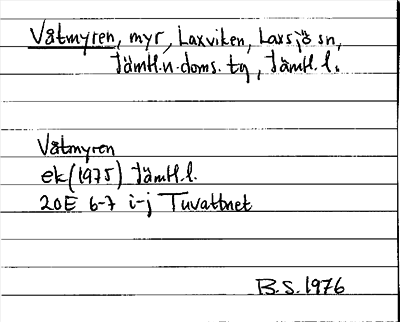 Våtmyren, myr, Laxviken, Laxsjö sn,
Jämtl.n.doms. tg, Jämtl.l.
Våtmyren
ek (1975) Jämtl.l.
20E 6-7 i-j Tuvattnet
B.S. 1976